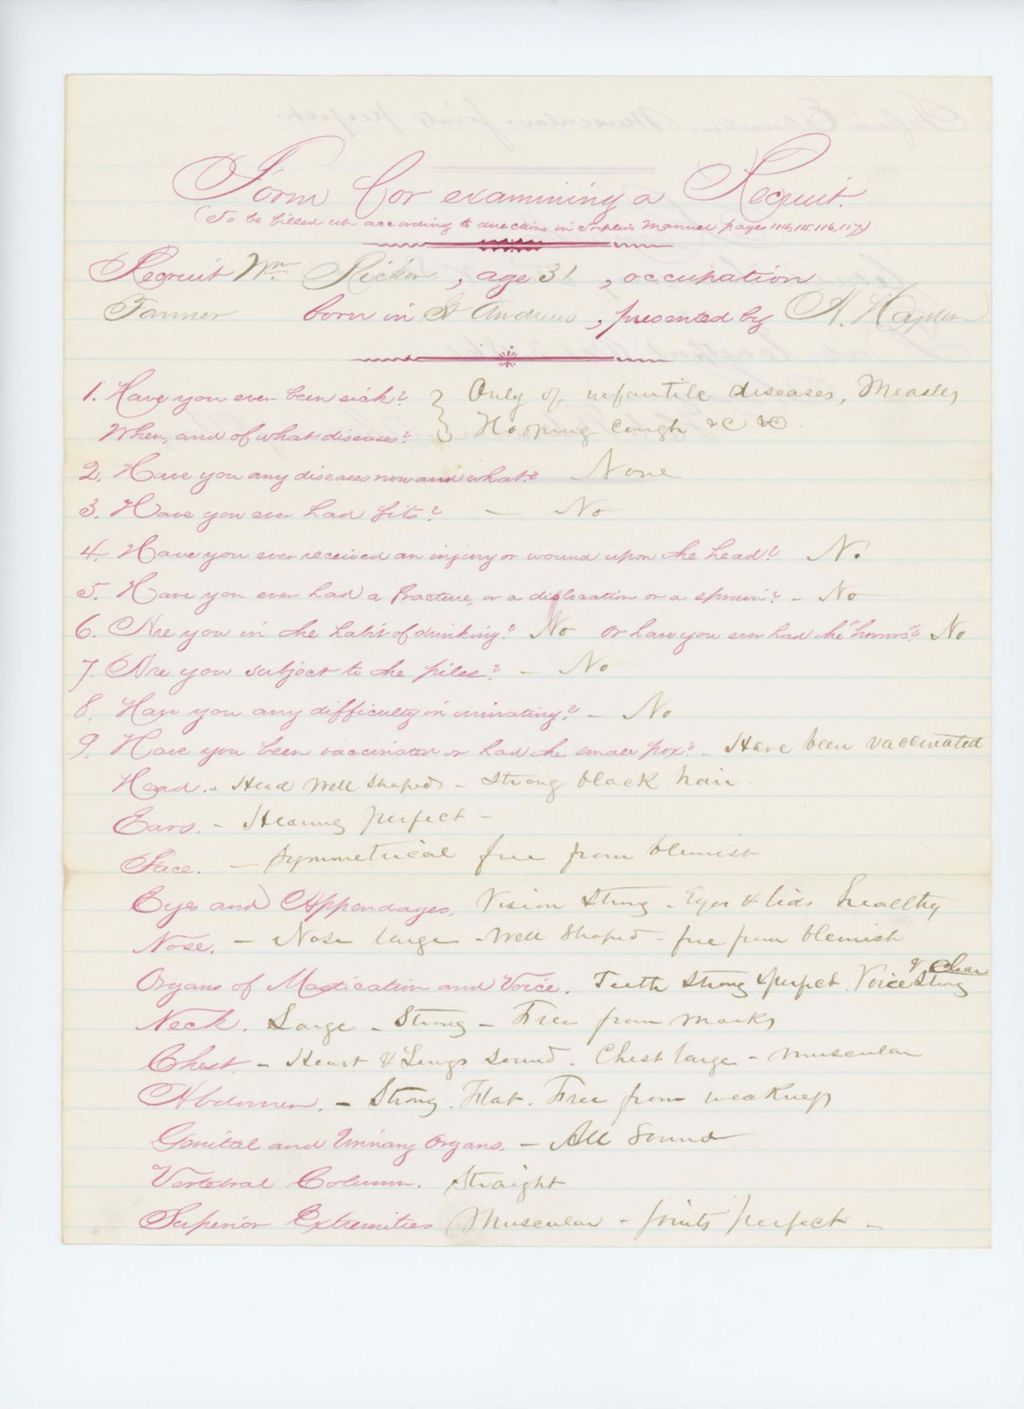 Form for examining a Recruit.
(To be filled up according to directions in Manual pages 114, 115, 116, 117,)
Recruit Wm , age 31 , occupation
Farmer born in St Andrews, presented by A.
1. Have you ever been sick? } Only of infantile diseases, Measles
When, and of what diseases? } Hooping Cough &c &c.
2. Have you any diseases now and what? None
3. Have you ever had fits? - No
4. Have you ever received an injury or wound upon the head? No
5. Have you ever had a fracture, or a dislocation or a sprain? - No
6. Are you in the habit of drinking? No or have you ever had the "horrors"? No
7. Are you subject to the piles? - No
8. Have you any difficulty in urinating? - No
9. Have you been vaccinated or had the small pox? - Have been vaccinated
Head. - Head Well Shaped - Strong black hair
Ears. - Hearing perfect -
Face. - Symmetrical free from blemish
Eyes and Appendages. Vision Strong - Eyes & lids healthy
Nose. - Nose large - Well Shaped - free from blemish
Organs of Mastication and Voice. Teeth Strong & perfect. Voice Strong & clear
Neck. Large - Strong - Free from marks
Chest - Heart & Lungs sound. Chest large - muscular
Abdomen. - Strong. Flat. Free from weakness
Genital and Urinary Organs. - All Sound
Vertebral Column. Straight
Superior Extremities Muscular - Joints perfect -